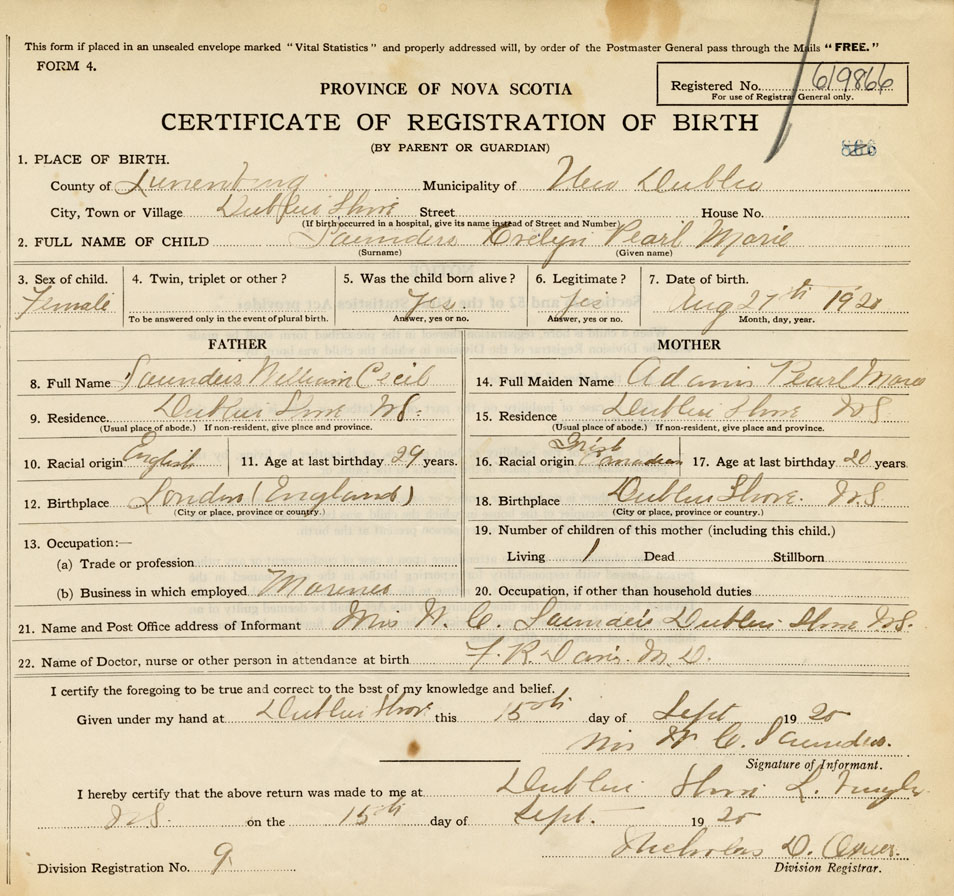 This form if placed in an unsealed envelope marked "Vital Statistics" and properly addressed will, by order of the Postmaster General pass through the Mails "FREE."
FORM 4.
Registered No. 619866
For use of Registrar General only.
PROVINCE OF NOVA SCOTIA
CERTIFICATE OF REGISTRATION OF BIRTH
(BY PARENT OR GUARDIAN)
886
1. PLACE OF BIRTH.
County of Lunenburg Municipality of New Dublin
City, Town or Village Dublin Shore Street House No.
(If birth occurred in a hospital, give its name instead of Street and Number)
2. FULL NAME OF CHILD Saunders Evelyn Pearl Marie
(Surname) (Given name)
3. Sex of child. 4. Twin, triplet or other? 5. Was the child born alive? 6. Legitimate? 7. Date of birth.
Female Yes Yes Aug 27th 1920
To be answered only in the event of plural birth. Answer, yes or no. Answer, yes or no. Month, day, year.
FATHER MOTHER
8. Full Name Saunders William Cecil
9. Residence. Dublin Shore NS.
(Usual place of abode.) If non-resident, give place and province.
10. Racial origin English 11. Age at last birthday 29 years.
12. Birthplace London (England)
(City or place, province or country.)
13. Occupation:—
(a) Trade or profession
(b) Business in which employed Marines
14. Full Maiden Name Adams Pearl Marie
15. Residence Dublin Shore NS
(Usual place of abode.) If non-resident, give place and province.
16. Racial origin Irish Canadian 17. Age at last birthday 20 years
18. Birthplace Dublin Shore. N.S
(City or place, province or country.)
19. Number of children of this mother (including this child.)
Living 1 Dead Stillborn
20. Occupation, if other than household duties
21. Name and Post Office address of Informant Mrs W. C. Saunders Dublin Shore N.S.
22. Name of Doctor, nurse or other person in attendance at birth F. R. Davis. M.D.
I certify the foregoing to be true and correct to the best of my knowledge and belief.
Given under my hand at Dublin Shore this 15th day of Sept 1920
Mrs W C. Saunders.
Signature of Informant.
I hereby certify that the above return was made to me at Dublin Shore L.
N.S. on the 15th day of Sept. 1920
Nicholas D.
Division Registration No. 9. Division Registrar.